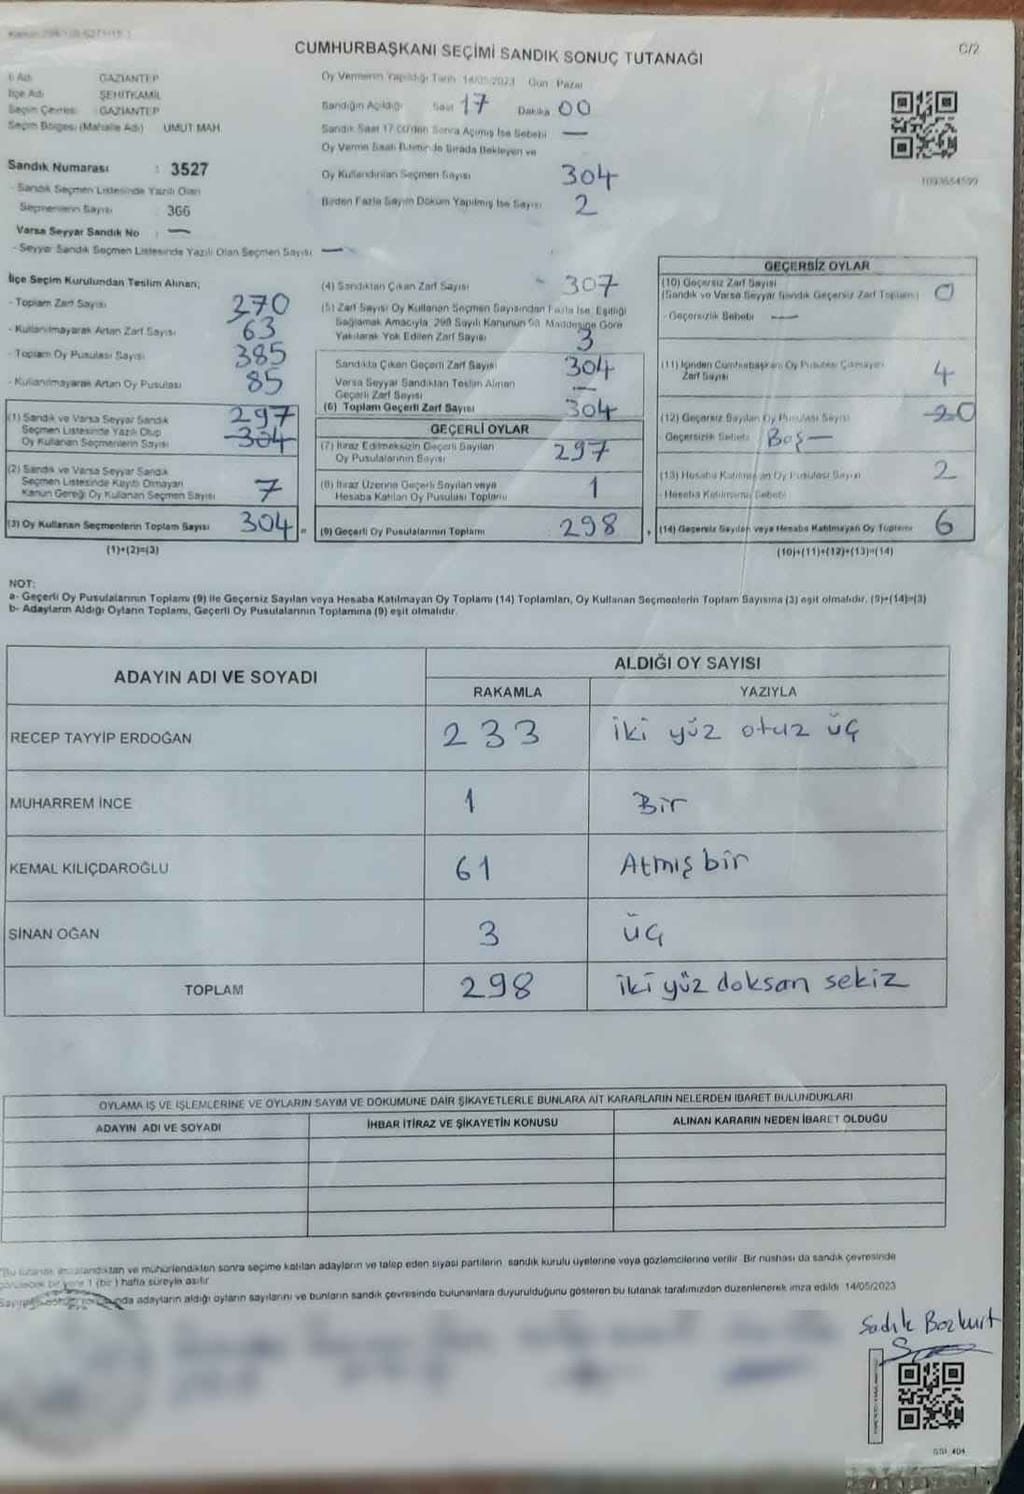 CUMHURBAŞKANI SEÇİMİ SANDIK SONUÇ TUTANAĞI
C/2
İl Adı GAZİANTEP
İlçe Adı ŞEHİTKAMİL
Seçim Çevresi GAZİANTEP
Seçim Bölgesi (Mahalle Adı) UMUT MAH.
Sandık Numarası : 3527
- Sandık Seçmen Listesinde Yazılı Olan
Seçmenlerin Sayısı : 366
Varsa Seyyar Sandık No : —
- Seyyar Sandık Seçmen Listesinde Yazılı Olan Seçmen Sayısı —
Oy Vermenin Yapıldığı Tarih 14/05/2023 Gün Pazar
Sandığın Açıldığı Saat 17 Dakika 00
Sandık Saat 17.00'den Sonra Açılmış İse Sebebi —
Oy Verme Saati Bitiminde Sırada Bekleyen ve
Oy Kullandırılan Seçmen Sayısı 304
Birden Fazla Sayım Döküm Yapılmış İse Sayısı 2
İlçe Seçim Kurulundan Teslim Alınan;
- Toplam Zarf Sayısı 370
- Kullanılmayarak Artan Zarf Sayısı 63
- Toplam Oy Pusulası Sayısı 385
- Kullanılmayarak Artan Oy Pusulası 85
(1) Sandık ve Varsa Seyyar Sandık
Seçmen Listesinde Yazılı Olup
Oy Kullanan Seçmenlerin Sayısı 297 304
(2) Sandık ve Varsa Seyyar Sandık
Seçmen Listesinde Kayıtlı Olmayan
Kanun Gereği Oy Kullanan Seçmen Sayısı 7
(3) Oy Kullanan Seçmenlerin Toplam Sayısı 304
(1)+(2)=(3)
(4) Sandıktan Çıkan Zarf Sayısı 307
(5) Zarf Sayısı Oy Kullanan Seçmen Sayısından Fazla İse, Eşitliği
Sağlamak Amacıyla, 298 Sayılı Kanunun 98. Maddesine Göre
Yakılarak Yok Edilen Zarf Sayısı 3
Sandıkta Çıkan Geçerli Zarf Sayısı 304
Varsa Seyyar Sandıktan Teslim Alınan
Geçerli Zarf Sayısı —
(6) Toplam Geçerli Zarf Sayısı 304
GEÇERLİ OYLAR
(7) İtiraz Edilmeksizin Geçerli Sayılan
Oy Pusulalarının Sayısı 297
(8) İtiraz Üzerine Geçerli Sayılan veya
Hesaba Katılan Oy Pusulası Toplamı 1
(9) Geçerli Oy Pusulalarının Toplamı 298
GEÇERSİZ OYLAR
(10) Geçersiz Zarf Sayısı 0
(Sandık ve Varsa Seyyar Sandık Geçersiz Zarf Toplamı)
- Geçersizlik Sebebi —
(11) İçinden Cumhurbaşkanı Oy Pusulası Çıkmayan
Zarf Sayısı 4
(12) Geçersiz Sayılan Oy Pusulası Sayısı 0
Geçersizlik Sebebi Boş —
(13) Hesaba Katılmayan Oy Pusulası Sayısı 2
- Hesaba Katılmama Sebebi
(14) Geçersiz Sayılan veya Hesaba Katılmayan Oy Toplamı 6
(10)+(11)+(12)+(13)=(14)
NOT:
a- Geçerli Oy Pusulalarının Toplamı (9) ile Geçersiz Sayılan veya Hesaba Katılmayan Oy Toplamı (14) Toplamları, Oy Kullanan Seçmenlerin Toplam Sayısına (3) eşit olmalıdır. (9)+(14)=(3)
b- Adayların Aldığı Oyların Toplamı, Geçerli Oy Pusulalarının Toplamına (9) eşit olmalıdır.
ADAYIN ADI VE SOYADI
ALDIĞI OY SAYISI
RAKAMLA YAZIYLA
RECEP TAYYİP ERDOĞAN 233 iki yüz otuz üç
MUHARREM İNCE 1 Bir
KEMAL KILIÇDAROĞLU 61 Atmış bir
SİNAN OĞAN 3 üç
TOPLAM 298 iki yüz doksan sekiz
OYLAMA İŞ VE İŞLEMLERİNE VE OYLARIN SAYIM VE DÖKÜMÜNE DAİR ŞİKAYETLERLE BUNLARA AİT KARARLARIN NELERDEN İBARET BULUNDUKLARI
ADAYIN ADI VE SOYADI İHBAR İTİRAZ VE ŞİKAYETİN KONUSU ALINAN KARARIN NEDEN İBARET OLDUĞU
imzalandıktan ve mühürlendikten sonra seçime katılan adayların ve talep eden siyasi partilerin sandık kurulu üyelerine veya gözlemcilerine verilir. Bir nüshası da sandık çevresinde
1 (bir) hafta süreyle asılır
adayların aldığı oyların sayılarını ve bunların sandık çevresinde bulunanlara duyurulduğunu gösteren bu tutanak tarafımızdan düzenlenerek imza edildi 14/05/2023
Sadık Bozkurt